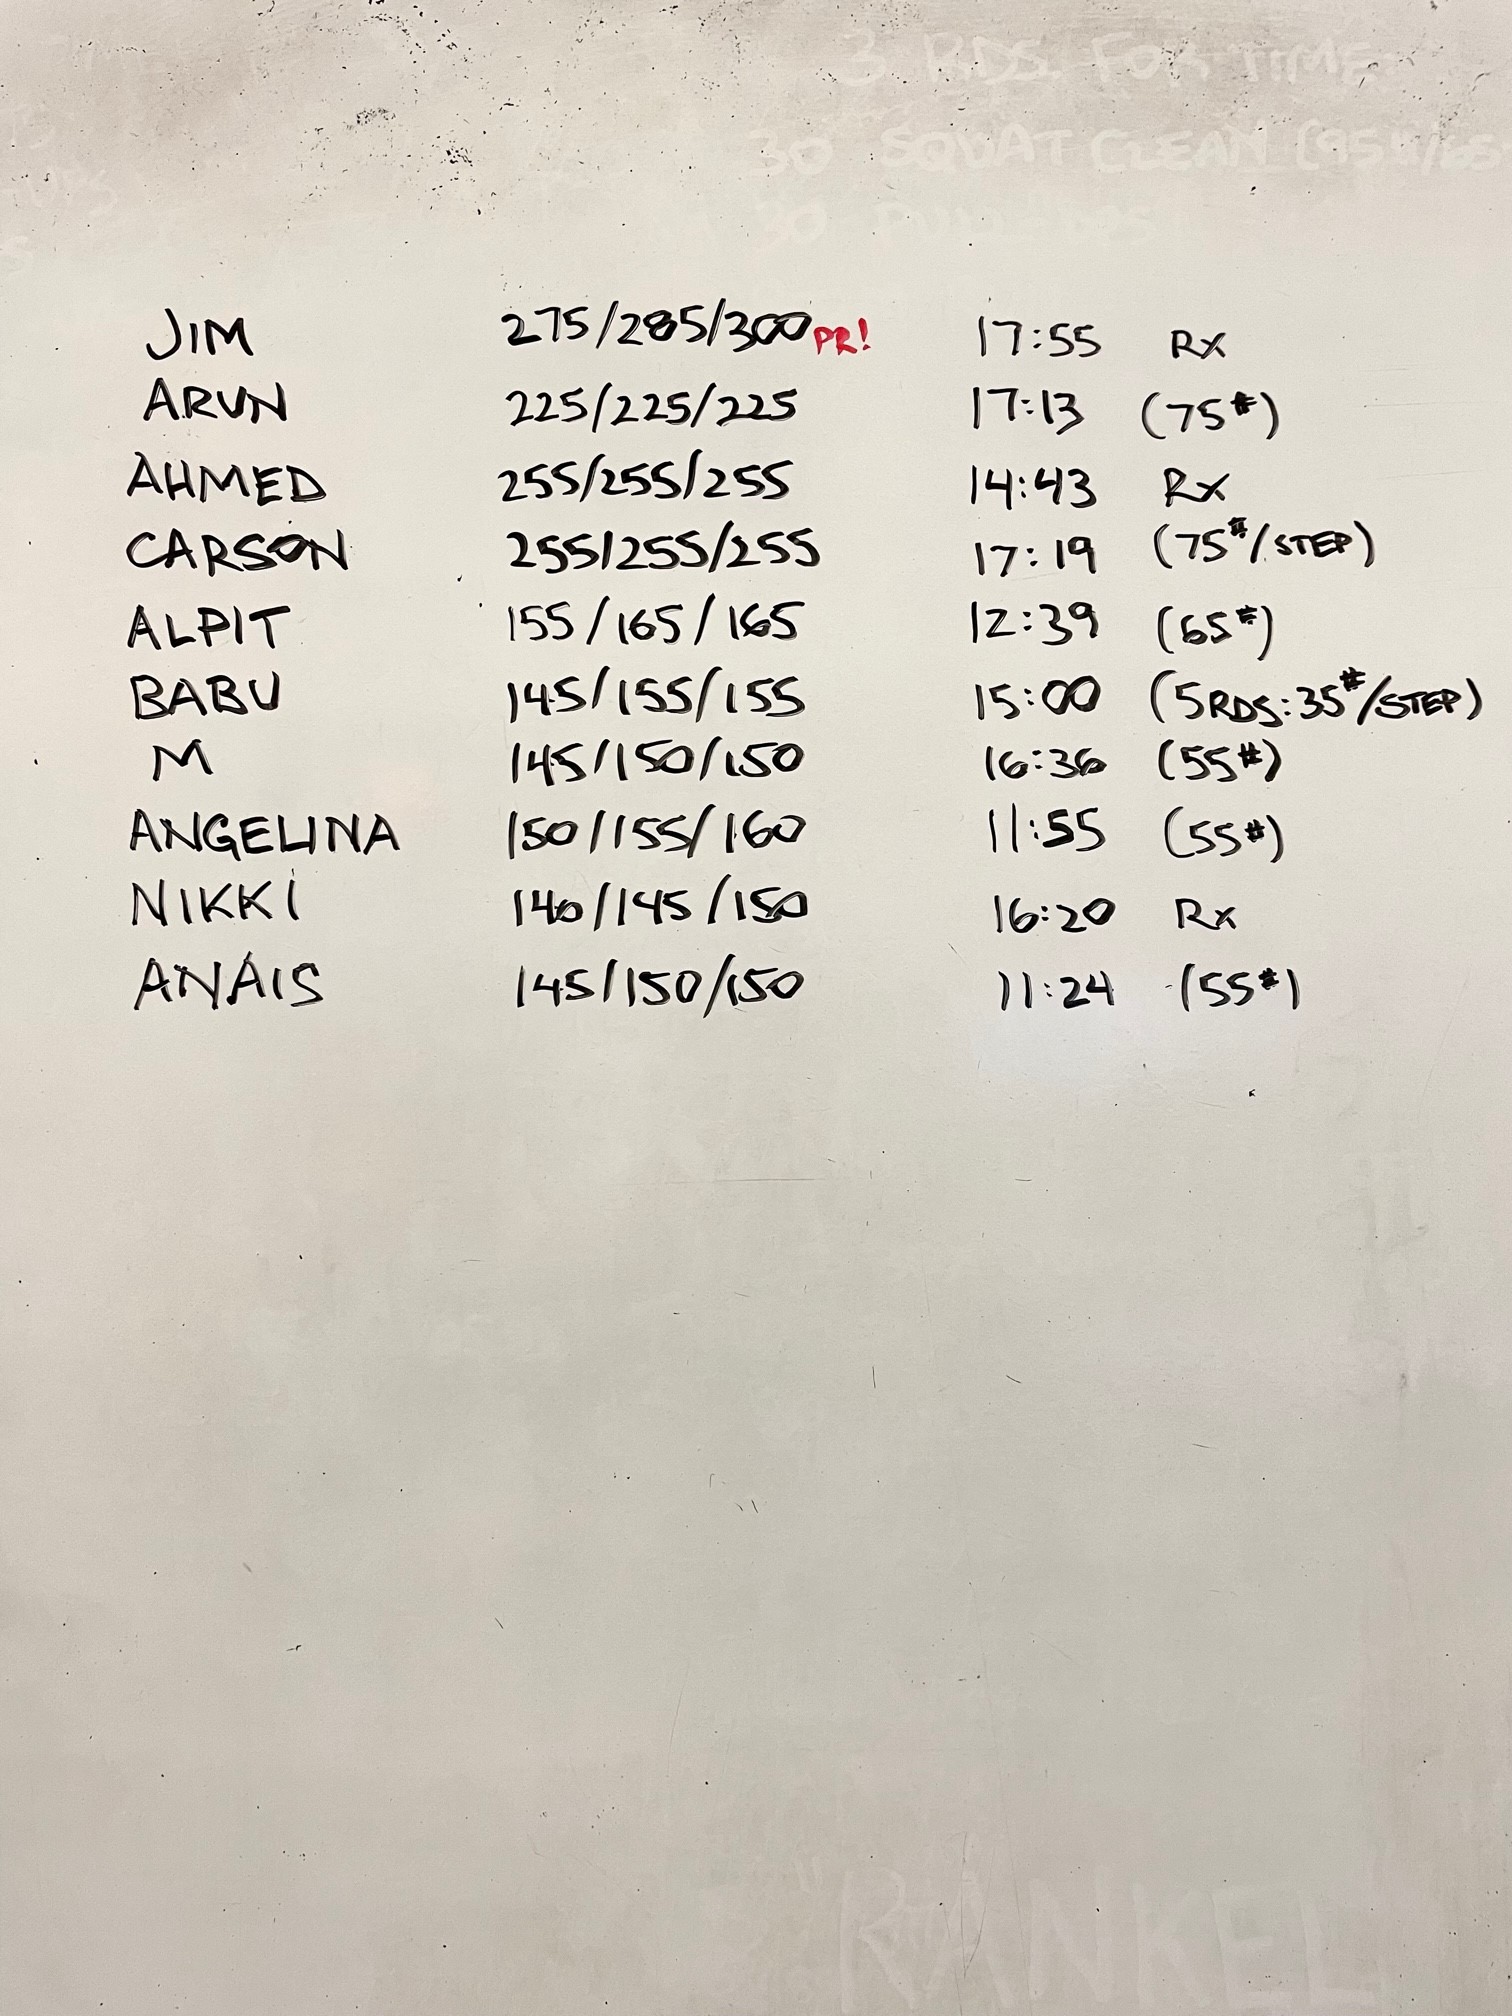 3 RDS. FOR TIME
30 SQUAT CLEAN (95#/65
30 PULL-UPS
JIM 275/285/300 PR! 17:55 Rx
ARUN 225/225/225 17:13 (75#)
AHMED 255/255/255 14:43 Rx
CARSON 255/255/255 17:19 (75#/STEP)
ALPIT 155/165/165 12:39 (65#)
BABU 145/155/155 15:00 (5RDS:35#/STEP)
M 145/150/150 16:36 (55#)
ANGELINA 150/155/160 11:55 (55#)
NIKKI 140/145/150 16:20 Rx
ANAIS 145/150/150 11:24 (55#)
"RANKEL